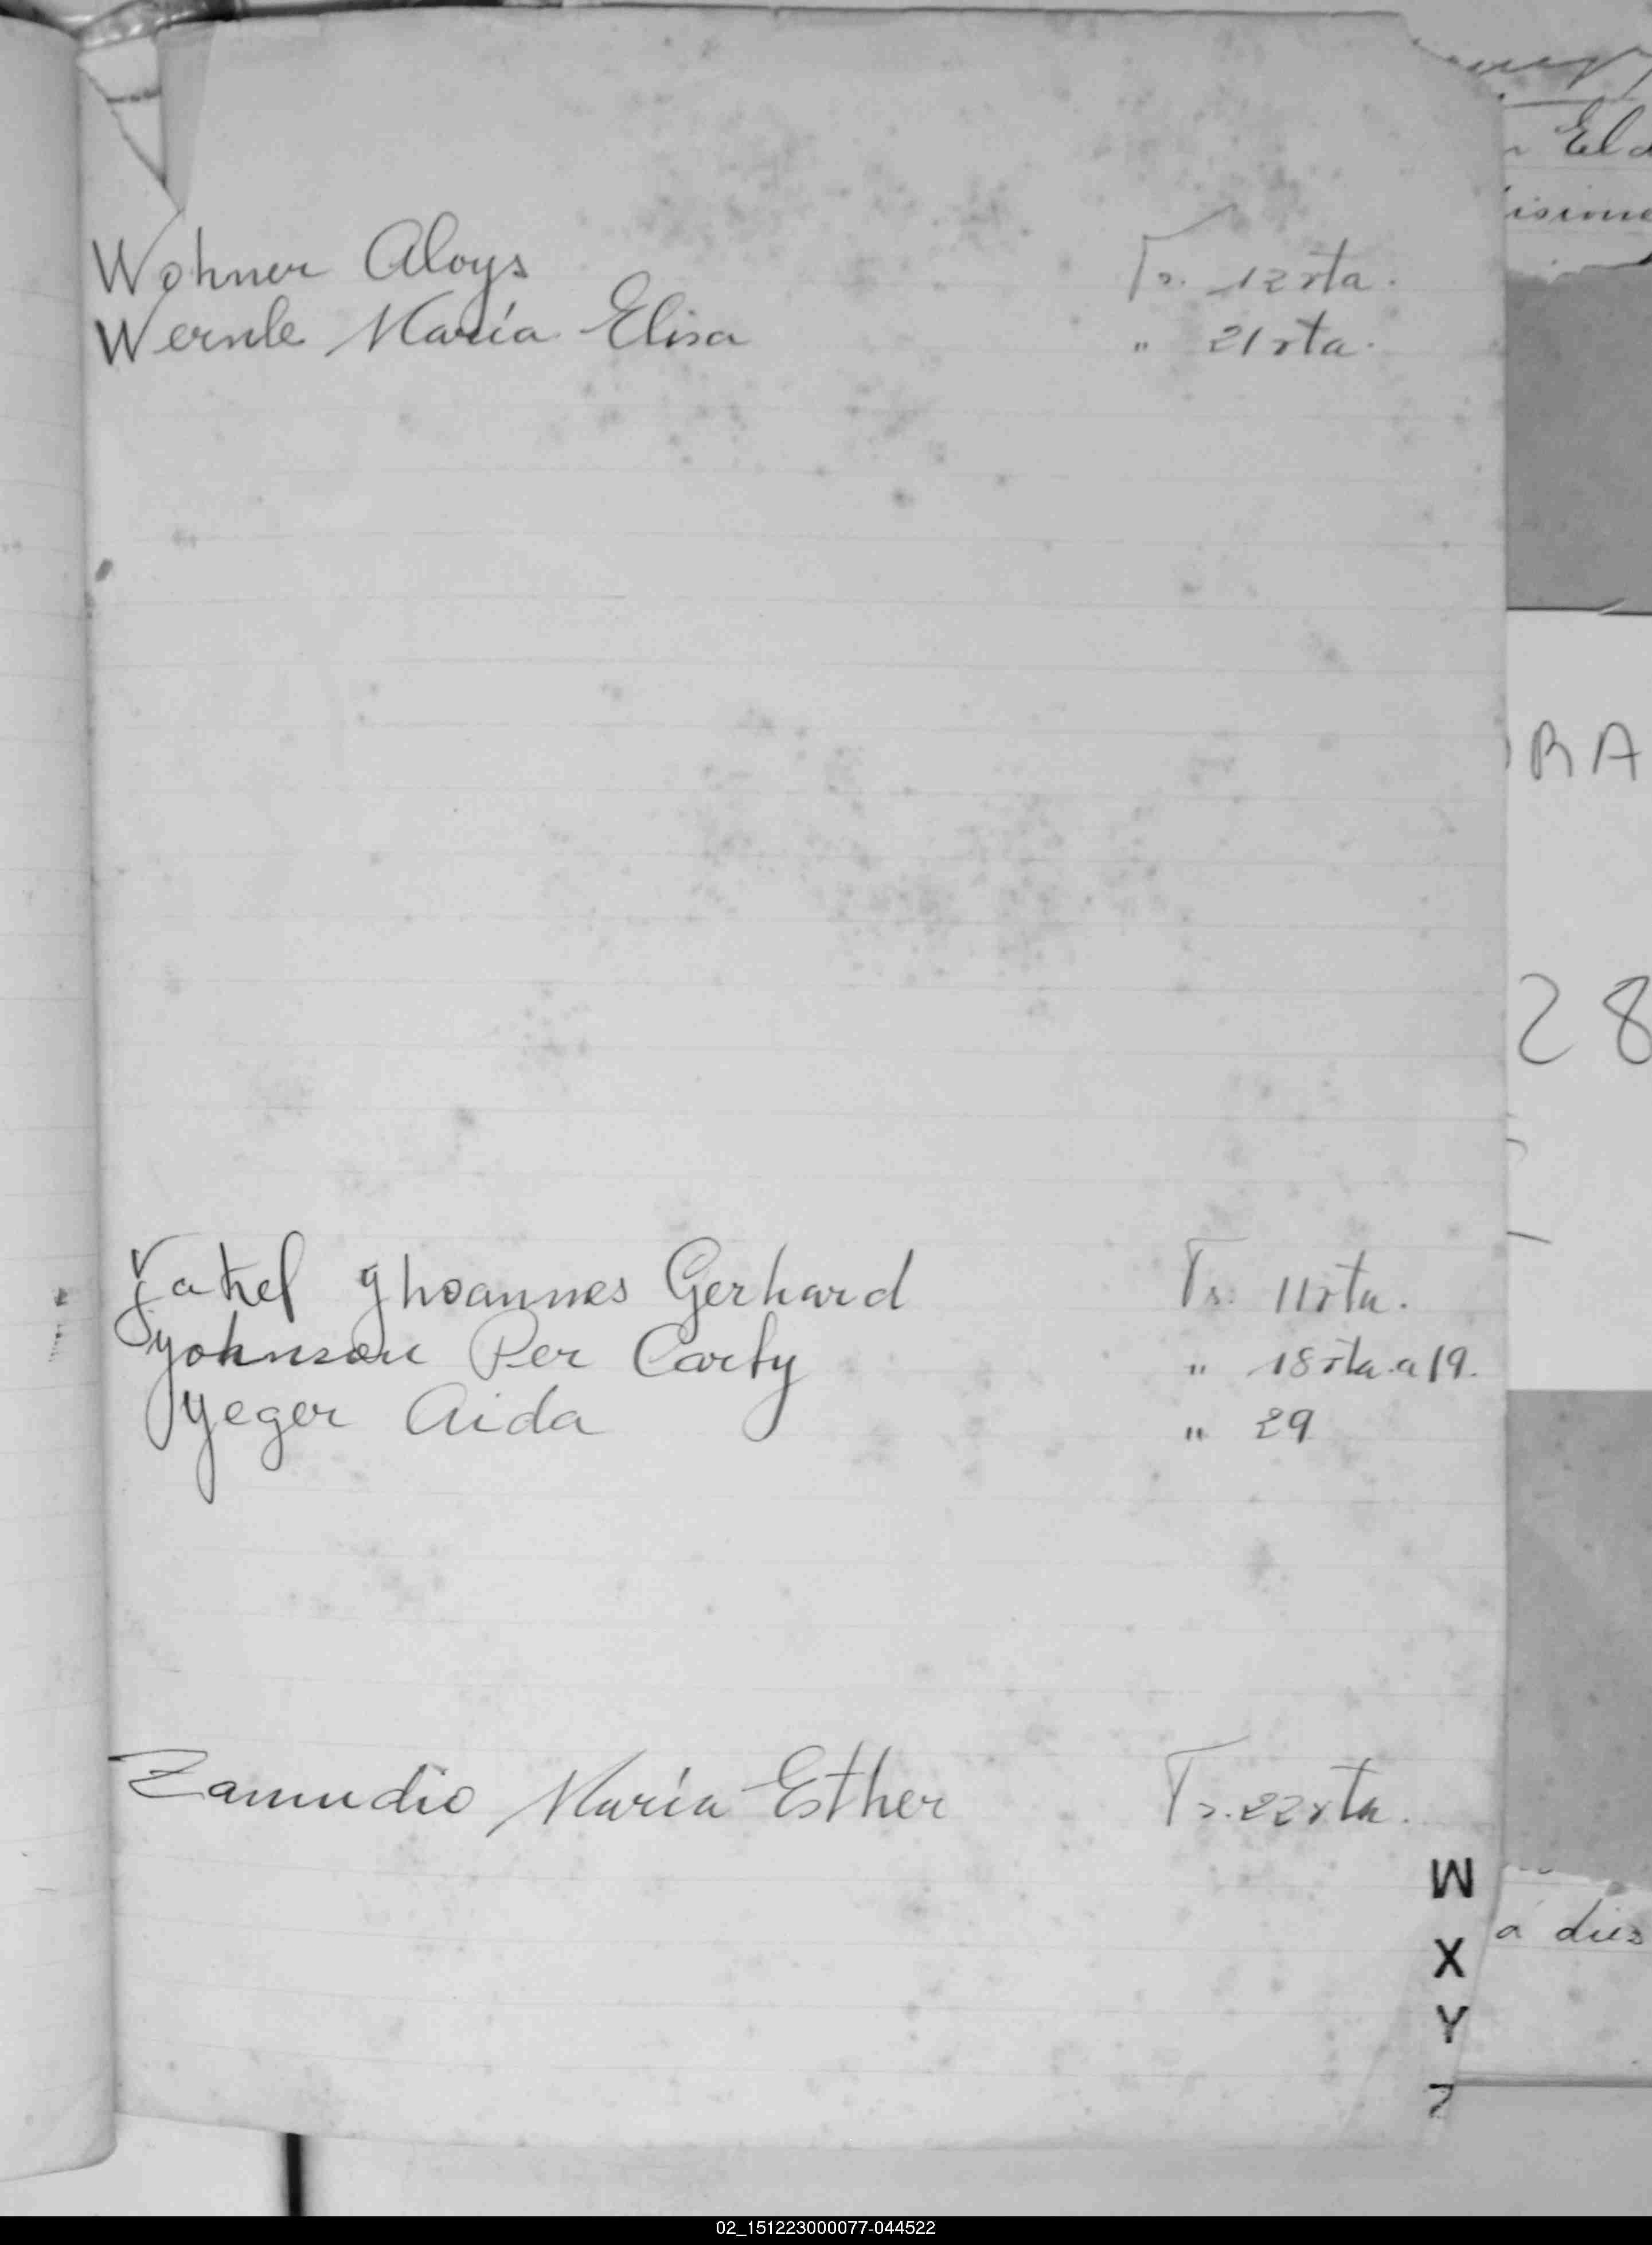 Wohner Aloys Fs. 12 vta.
Wernle María Elisa " 21 vta.
Yakel Yhoannes Gerhard Fs. 11 vta.
Yohnson Per Carty " 18 vta. a 19.
Yeger Aida " 29
Zamudio María Esther Fs. 22 vta.
W
X
Y
Z
Eld
isione
ORA
28
a dies
02_151223000077-044522